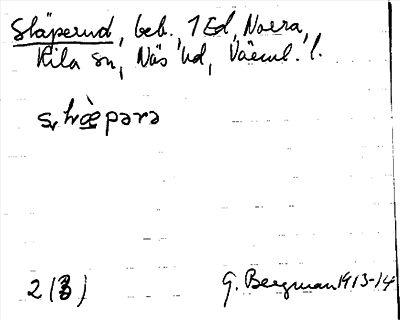 Släperud, beb., 1 Ed, Norra,
Kila sn, Näs hd, Värml. l.
pərə
2 (3) G. Bergman 1913-14